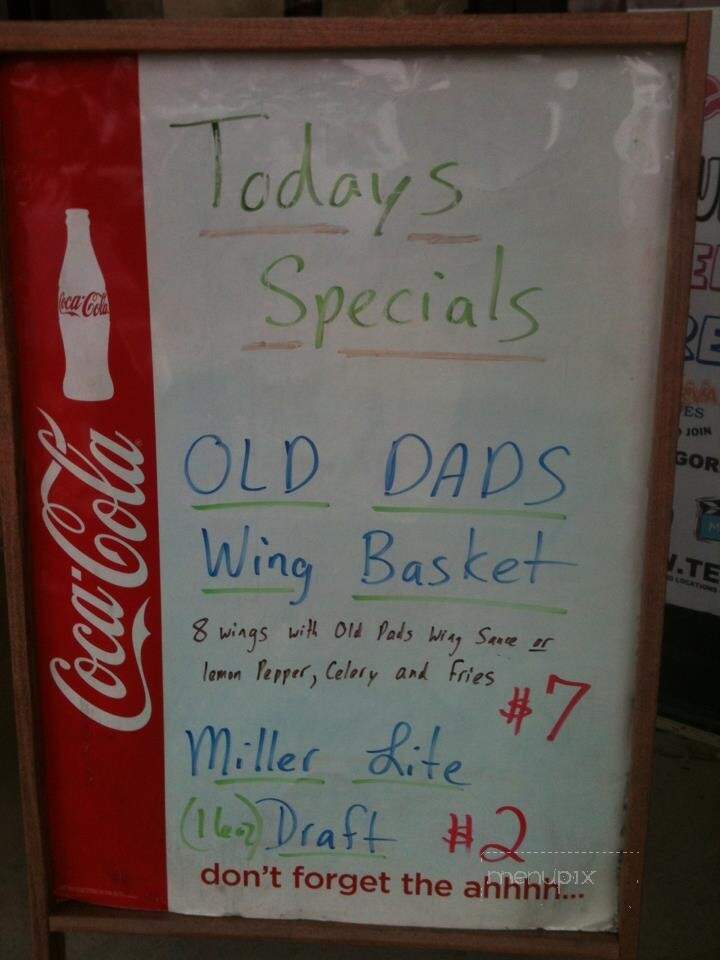 Todays
Specials
Coca-Cola
Coca-Cola
OLD DADS
Wing Basket
8 wings with Old Dads Wing Sauce or
lemon Pepper, Celery and Fries
#7
Miller Lite
(16oz) Draft #2
don't forget the ahhhh...
menupix
ES
JOIN
GOR
.TE
LOCATIONS